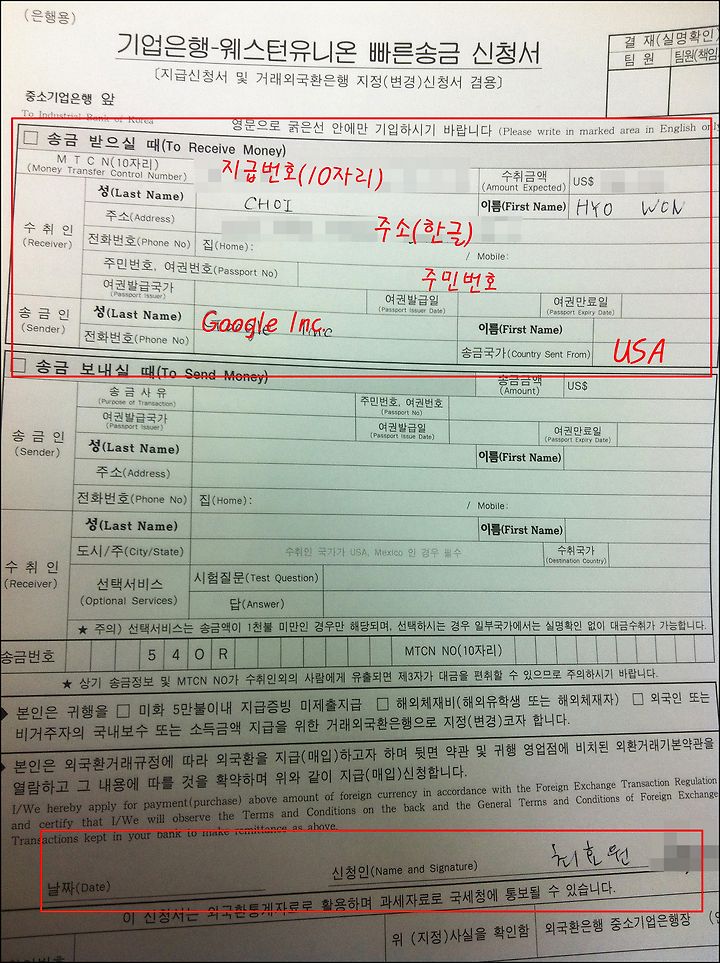 (은행용)
기업은행-웨스턴유니온 빠른송금 신청서
〔지급신청서 및 거래외국환은행 지정(변경)신청서 겸용〕
결 재(실명확인)
팀 원 팀원(책임
중소기업은행 앞
To Industrial Bank of Korea
영문으로 굵은선 안에만 기입하시기 바랍니다 (Please write in marked area in English only
□ 송금 받으실 때(To Receive Money)
M T C N(10자리)
(Money Transfer Control Number)
지급번호(10자리)
수취금액
(Amount Expected)
US$
수 취 인
(Receiver)
성(Last Name) CHOI 이름(First Name) HYO WON
주소(Address) 주소(한글)
전화번호(Phone No) 집(Home): / Mobile:
주민번호, 여권번호(Passport No) 주민번호
여권발급국가
(Passport Issuer)
여권발급일
(Passport Issuer Date)
여권만료일
(Passport Expiry Date)
송 금 인
(Sender)
성(Last Name) Google Inc. 이름(First Name)
전화번호(Phone No) 송금국가(Country Sent From) USA
□ 송금 보내실 때(To Send Money)
송금금액
(Amount)
US$
송 금 인
(Sender)
송 금 사 유
(Purpose of Transaction)
주민번호, 여권번호
(Passport No)
여권발급국가
(Passport Issuer)
여권발급일
(Passport Issue Date)
여권만료일
(Passport Expiry Date)
성(Last Name) 이름(First Name)
주소(Address)
전화번호(Phone No) 집(Home): / Mobile:
수 취 인
(Receiver)
성(Last Name) 이름(First Name)
도시/주(City/State) 수취인 국가가 USA, Mexico 인 경우 필수
수취국가
(Destination Country)
선택서비스
(Optional Services)
시험질문(Test Question)
답(Answer)
★ 주의) 선택서비스는 송금액이 1천불 미만인 경우만 해당되며, 선택하시는 경우 일부국가에서는 실명확인 없이 대금수취가 가능합니다.
송금번호 5 4 0 R MTCN NO(10자리)
★ 상기 송금정보 및 MTCN NO가 수취인외의 사람에게 유출되면 제3자가 대금을 편취할 수 있으므로 주의하시기 바랍니다.
◆ 본인은 귀행을 □ 미화 5만불이내 지급증빙 미제출지급 □ 해외체재비(해외유학생 또는 해외체재자) □ 외국인 또는
비거주자의 국내보수 또는 소득금액 지급을 위한 거래외국환은행으로 지정(변경)코자 합니다.
◆ 본인은 외국환거래규정에 따라 외국환을 지급(매입)하고자 하며 뒷면 약관 및 귀행 영업점에 비치된 외환거래기본약관을
열람하고 그 내용에 따를 것을 확약하며 위와 같이 지급(매입)신청합니다.
I/We hereby apply for payment(purchase) above amount of foreign currency in accordance with the Foreign Exchange Transaction Regulation
and certify that I/We will observe the Terms and Conditions on the back and the General Terms and Conditions of Foreign Exchange
Transactions kept in your bank to make remittance as above.
날짜(Date) 신청인(Name and Signature) 최효원
이 신청서는 외국환통계자료로 활용하며 과세자료로 국세청에 통보될 수 있습니다.
위 (지정)사실을 확인함 외국환은행 중소기업은행장